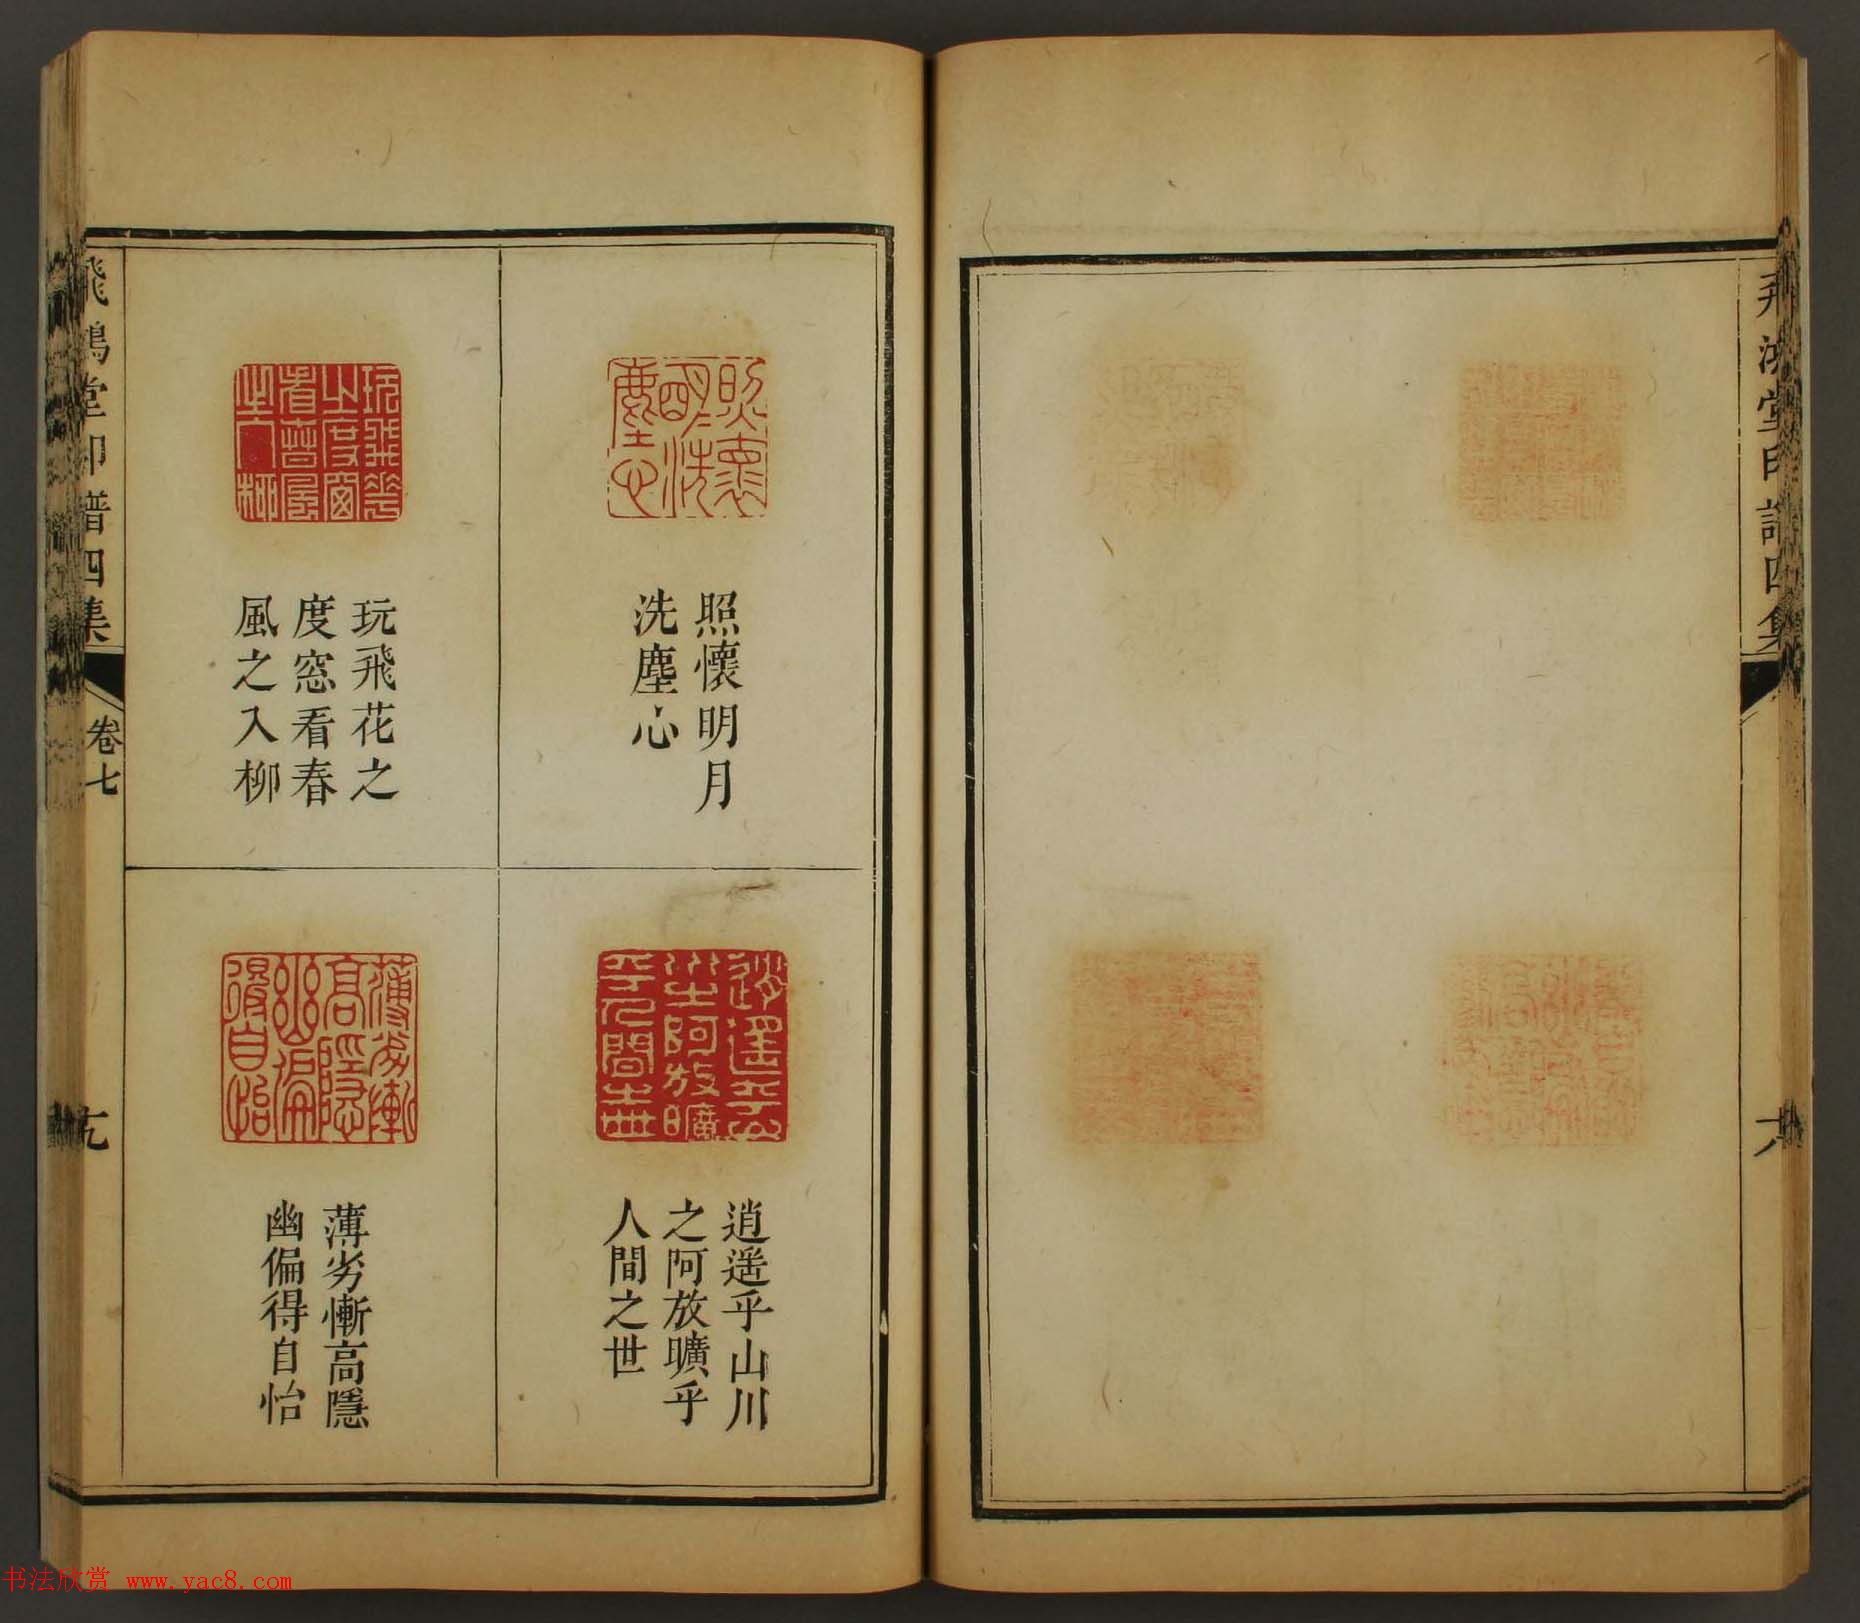 飛鴻堂印譜四集
六
照懷明月
洗塵心
玩飛花之
度窓看春
風之入柳
逍遥乎山川
之阿放曠乎
人間之世
薄劣慚高隱
幽偏得自怡
飛鴻堂印譜四集
卷七
九
书法欣赏 www.yac8.com